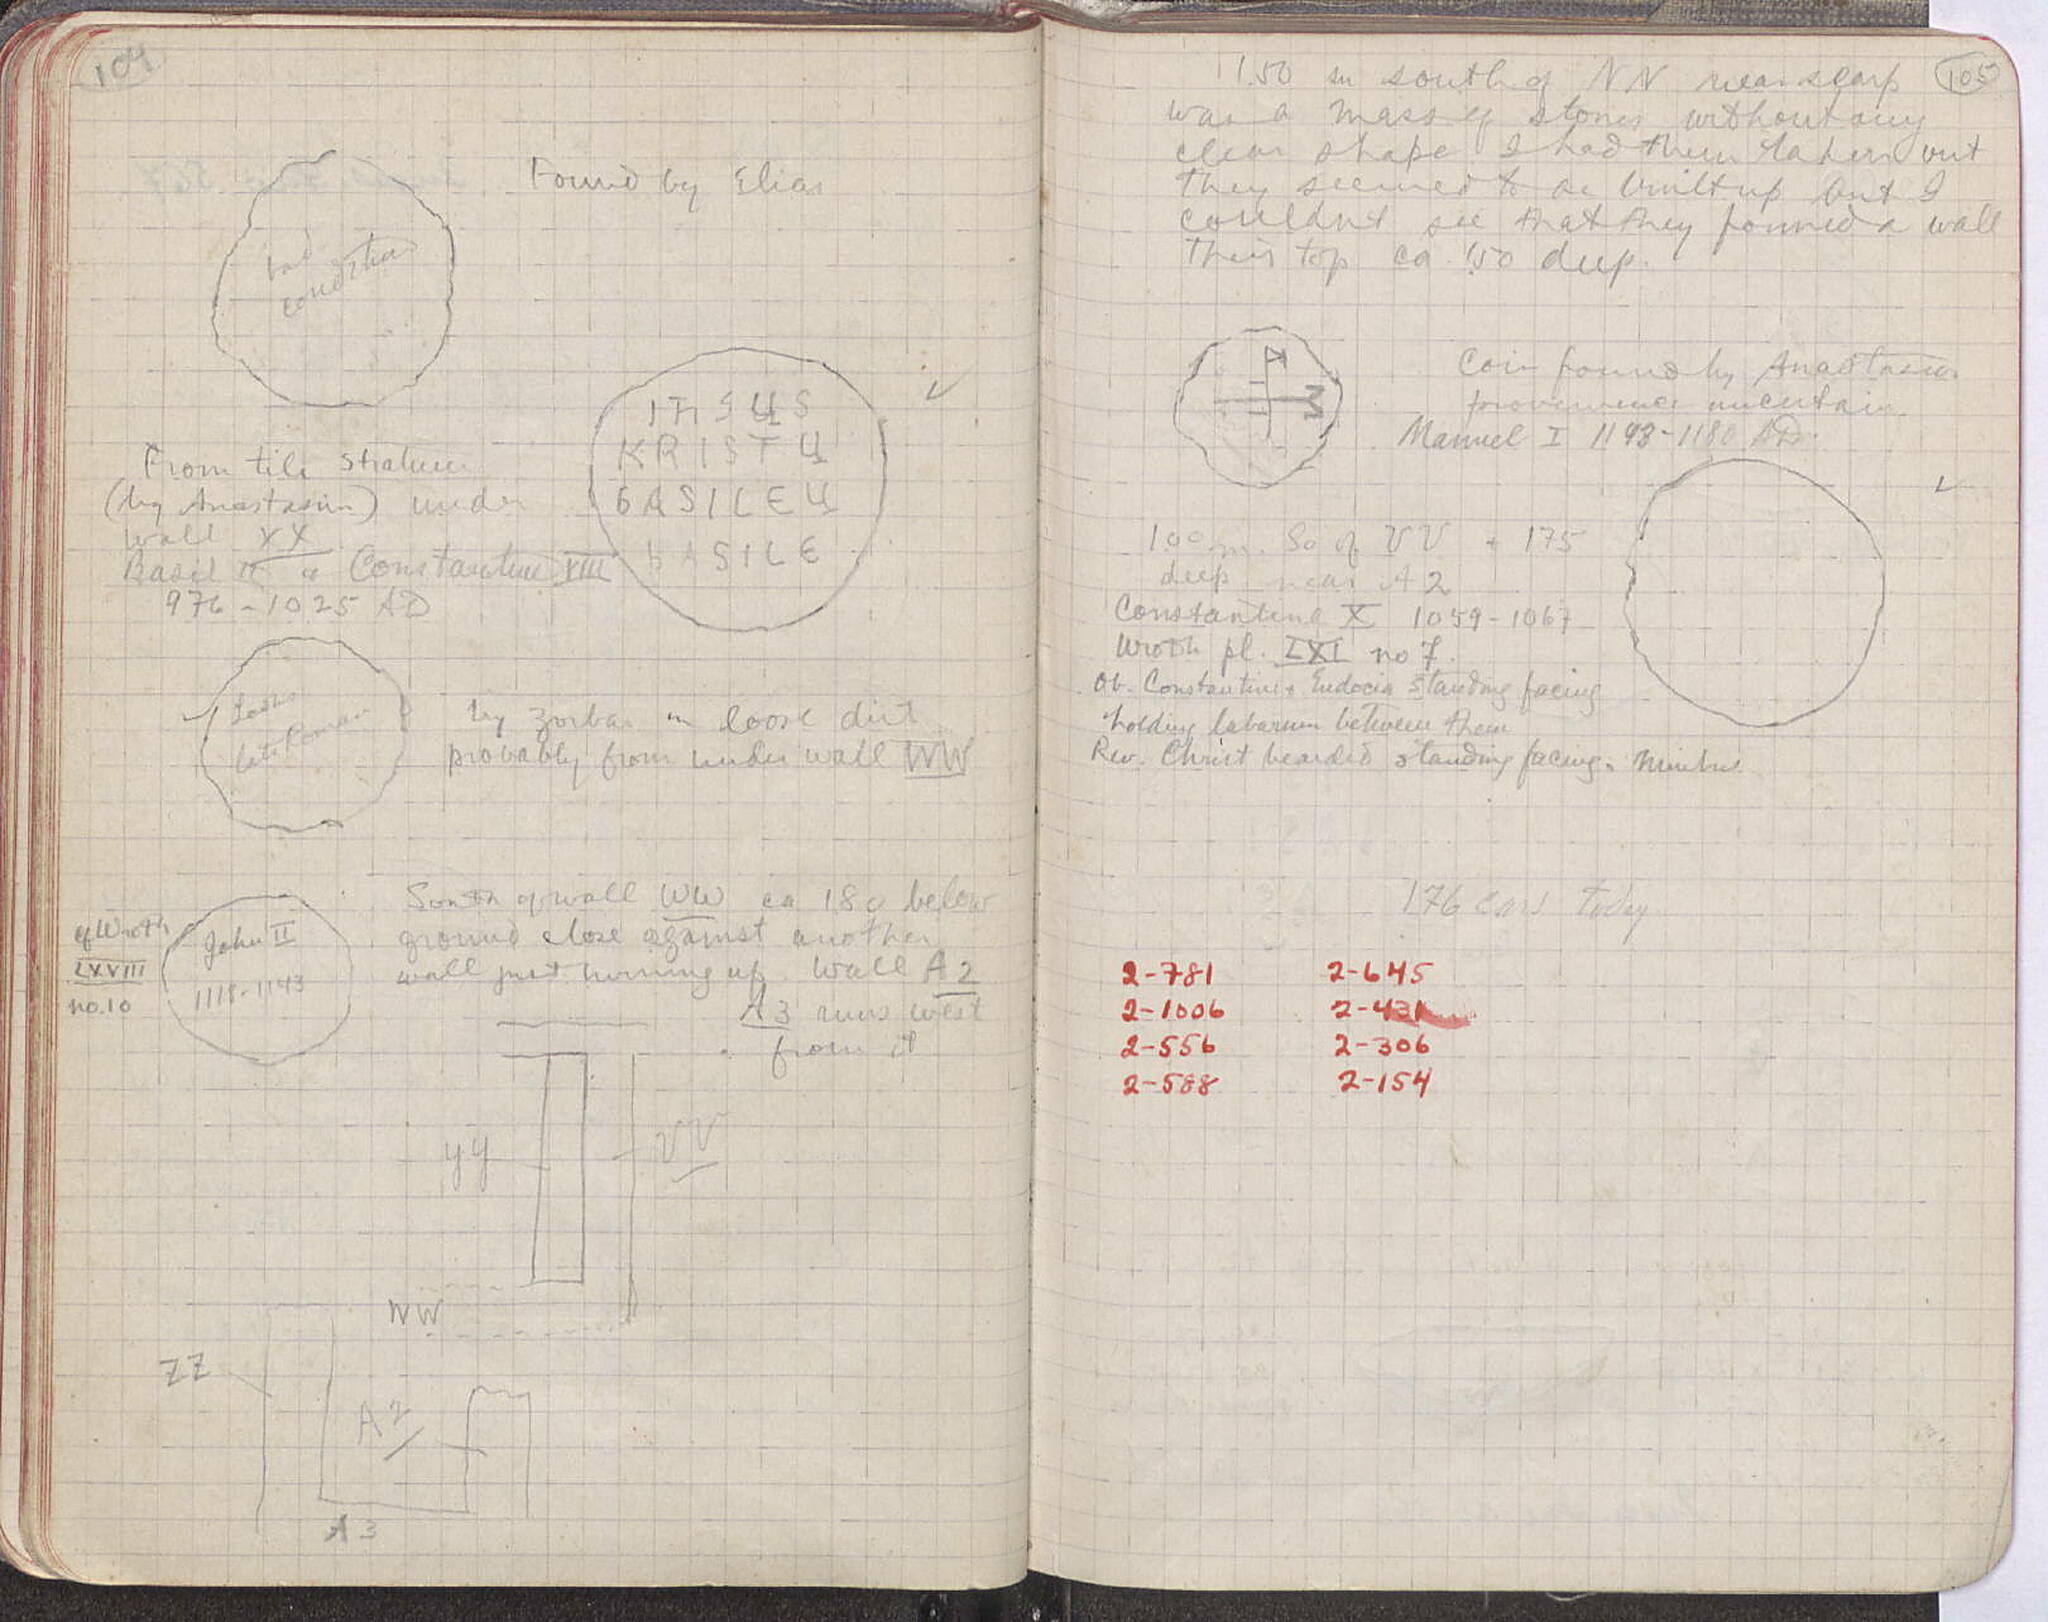 104
Found by Elias
bad
condition
IHSUS
KRISTU
bASILEU
bASILE
From tile stratum
(by Anastasius) under
wall XX
Basil II & Constantine VIII
976-1025 AD
Looks
late Roman
by Zorbas in loose dirt
probably from under wall WW
South of wall WW ca 1.80 below
ground close against another
wall just turning up. Wall A2
A3 runs west
from it
cf Wroth
LXVIII
no. 10
John II
1118-1143
yy
VV
WW
ZZ
A2
A3
105
1.50 m south of NN near scarp
was a mass of stones without any
clear shape I had them taken out
they seemed to be built up but I
couldnt see that they formed a wall
Their top ca. 1.50 deep.
K
M
Coin found by Anastasius
provenience uncertain
Manuel I 1143-1180 AD.
1.00 m. So of VV + 175
deep near A2
Constantine X 1059-1067
Wroth pl. LXI no 7.
Ob. Constantine & Eudocia standing facing
holding labarum between them
Rev. Christ bearded standing facing. Nimbus
176 cars today
2-781 2-645
2-1006 2-431
2-556 2-306
2-588 2-154